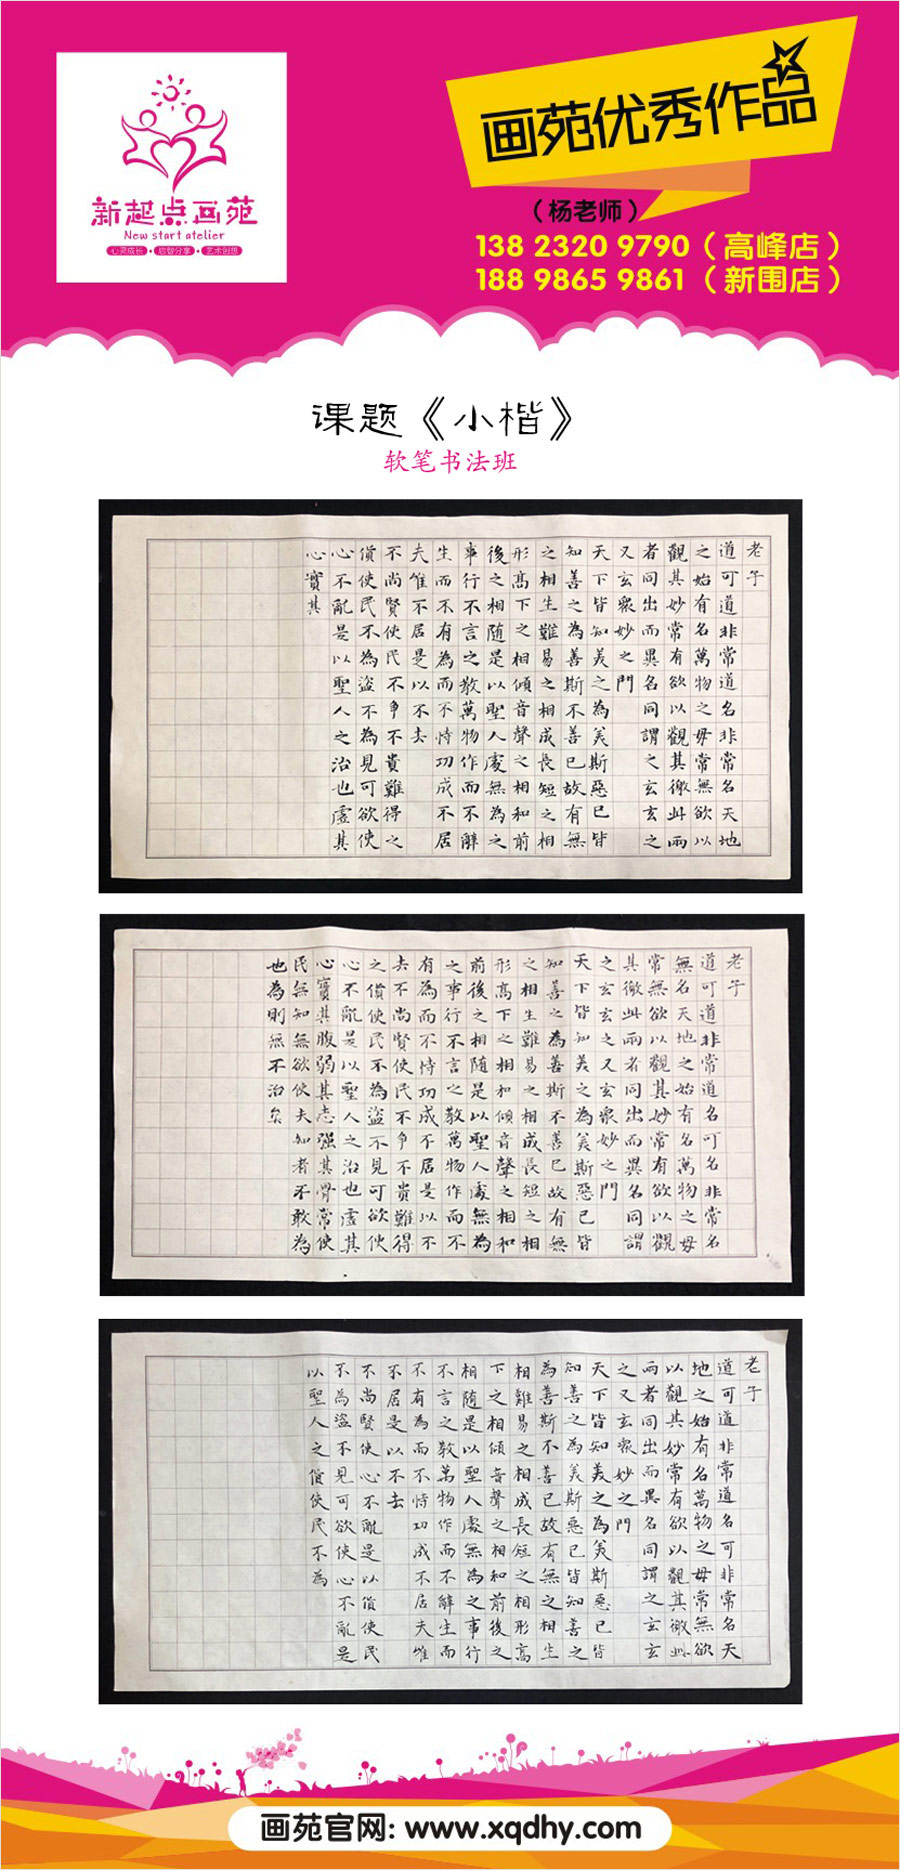 新起点画苑
New start atelier
心灵成长·启智分享·艺术创想
画苑优秀作品
（杨老师）
138 2320 9790（高峰店）
188 9865 9861（新围店）
课题《小楷》
软笔书法班
老子
道可道非常道名非常名天地
之始有名萬物之母常無欲以
觀其妙常有欲以觀其徼此兩
者同出而異名同謂之玄玄之
又玄衆妙之門
天下皆知美之為美斯惡已皆
知善之為善斯不善已故有無
之相生難易之相成長短之相
形高下之相傾音聲之相和前
後之相随是以聖人處無為之
事行不言之教萬物作而不辭
生而不有為而不恃功成不居
夫惟不居是以不去
不尚賢使民不争不貴難得之
貨使民不為盜不為見可欲使
心不亂是以聖人之治也虛其
心實其
老子
道可道非常道名可名非常名
無名天地之始有名萬物之母
常無欲以觀其妙常有欲以觀
其徼此兩者同出而異名同謂
之玄玄之又玄衆妙之門
天下皆知美之為美斯惡已皆
知善之為善斯不善已故有無
之相生難易之相成長短之相
形高下之相和傾音聲之相和
前後之相随是以聖人處無為
之事行不言之教萬物作而不
有為而不恃功成不居是以不
去不尚賢使民不争不貴難得
之貨使民不為盜不見可欲使
心不亂是以聖人之治也虛其
心實其腹弱其志強其骨常使
民無知無欲使夫知者不敢為
也為則無不治矣
老子
道可道非常道名可非常名天
地之始有名萬物之母常無欲
以觀其妙常有欲以觀其徼此
兩者同出而異名同謂之玄玄
之又玄衆妙之門
天下皆知美之為美斯惡已皆
知善之為美斯惡已皆知善之
為善斯不善已故有無之相生
相難易之相成長短之相形高
下之相傾音聲之相和前後之
相随是以聖人處無為之事行
不言之教萬物作而不辭生而
不有為而不恃功成不居夫惟
不居是以不去
不尚賢使心不亂是以貨使民
不為盜不見可欲使心不亂是
以聖人之貨使民不為
画苑官网: www.xqdhy.com